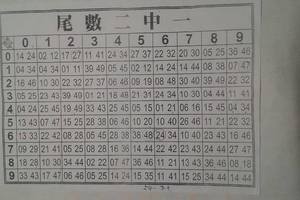 尾數二中一
0 1 2 3 4 5 6 7 8 9
0 14 24 02 12 17 27 11 41 24 34 27 37 22 32 20 30 05 25 36 46
1 04 34 04 34 01 11 39 49 05 45 02 12 19 49 01 21 03 33 22 32
2 16 46 10 30 22 32 20 30 06 46 09 19 08 48 30 40 39 49 22 32
3 05 25 23 43 13 23 40 49
4 04 24 25 45 19 49 33 43 25 45 05 15 01 21 06 16 15 45 04 34
5 13 43 07 47 15 25 28 38 06 26 10 20 10 40 26 46 11 21 22 32
6 13 33 22 42 08 28 05 45 28 38 38 48 24 34 10 40 23 43 16 46
7 09 29 21 41 05 25 08 18
8 18 28 10 30 34 44 02 22 07 47 36 46 11 21 13 43 36 46 08 18
9 33 43 17 47 06 46 05 25 14 24 15 35 11 41 15 25 34 44 14 44